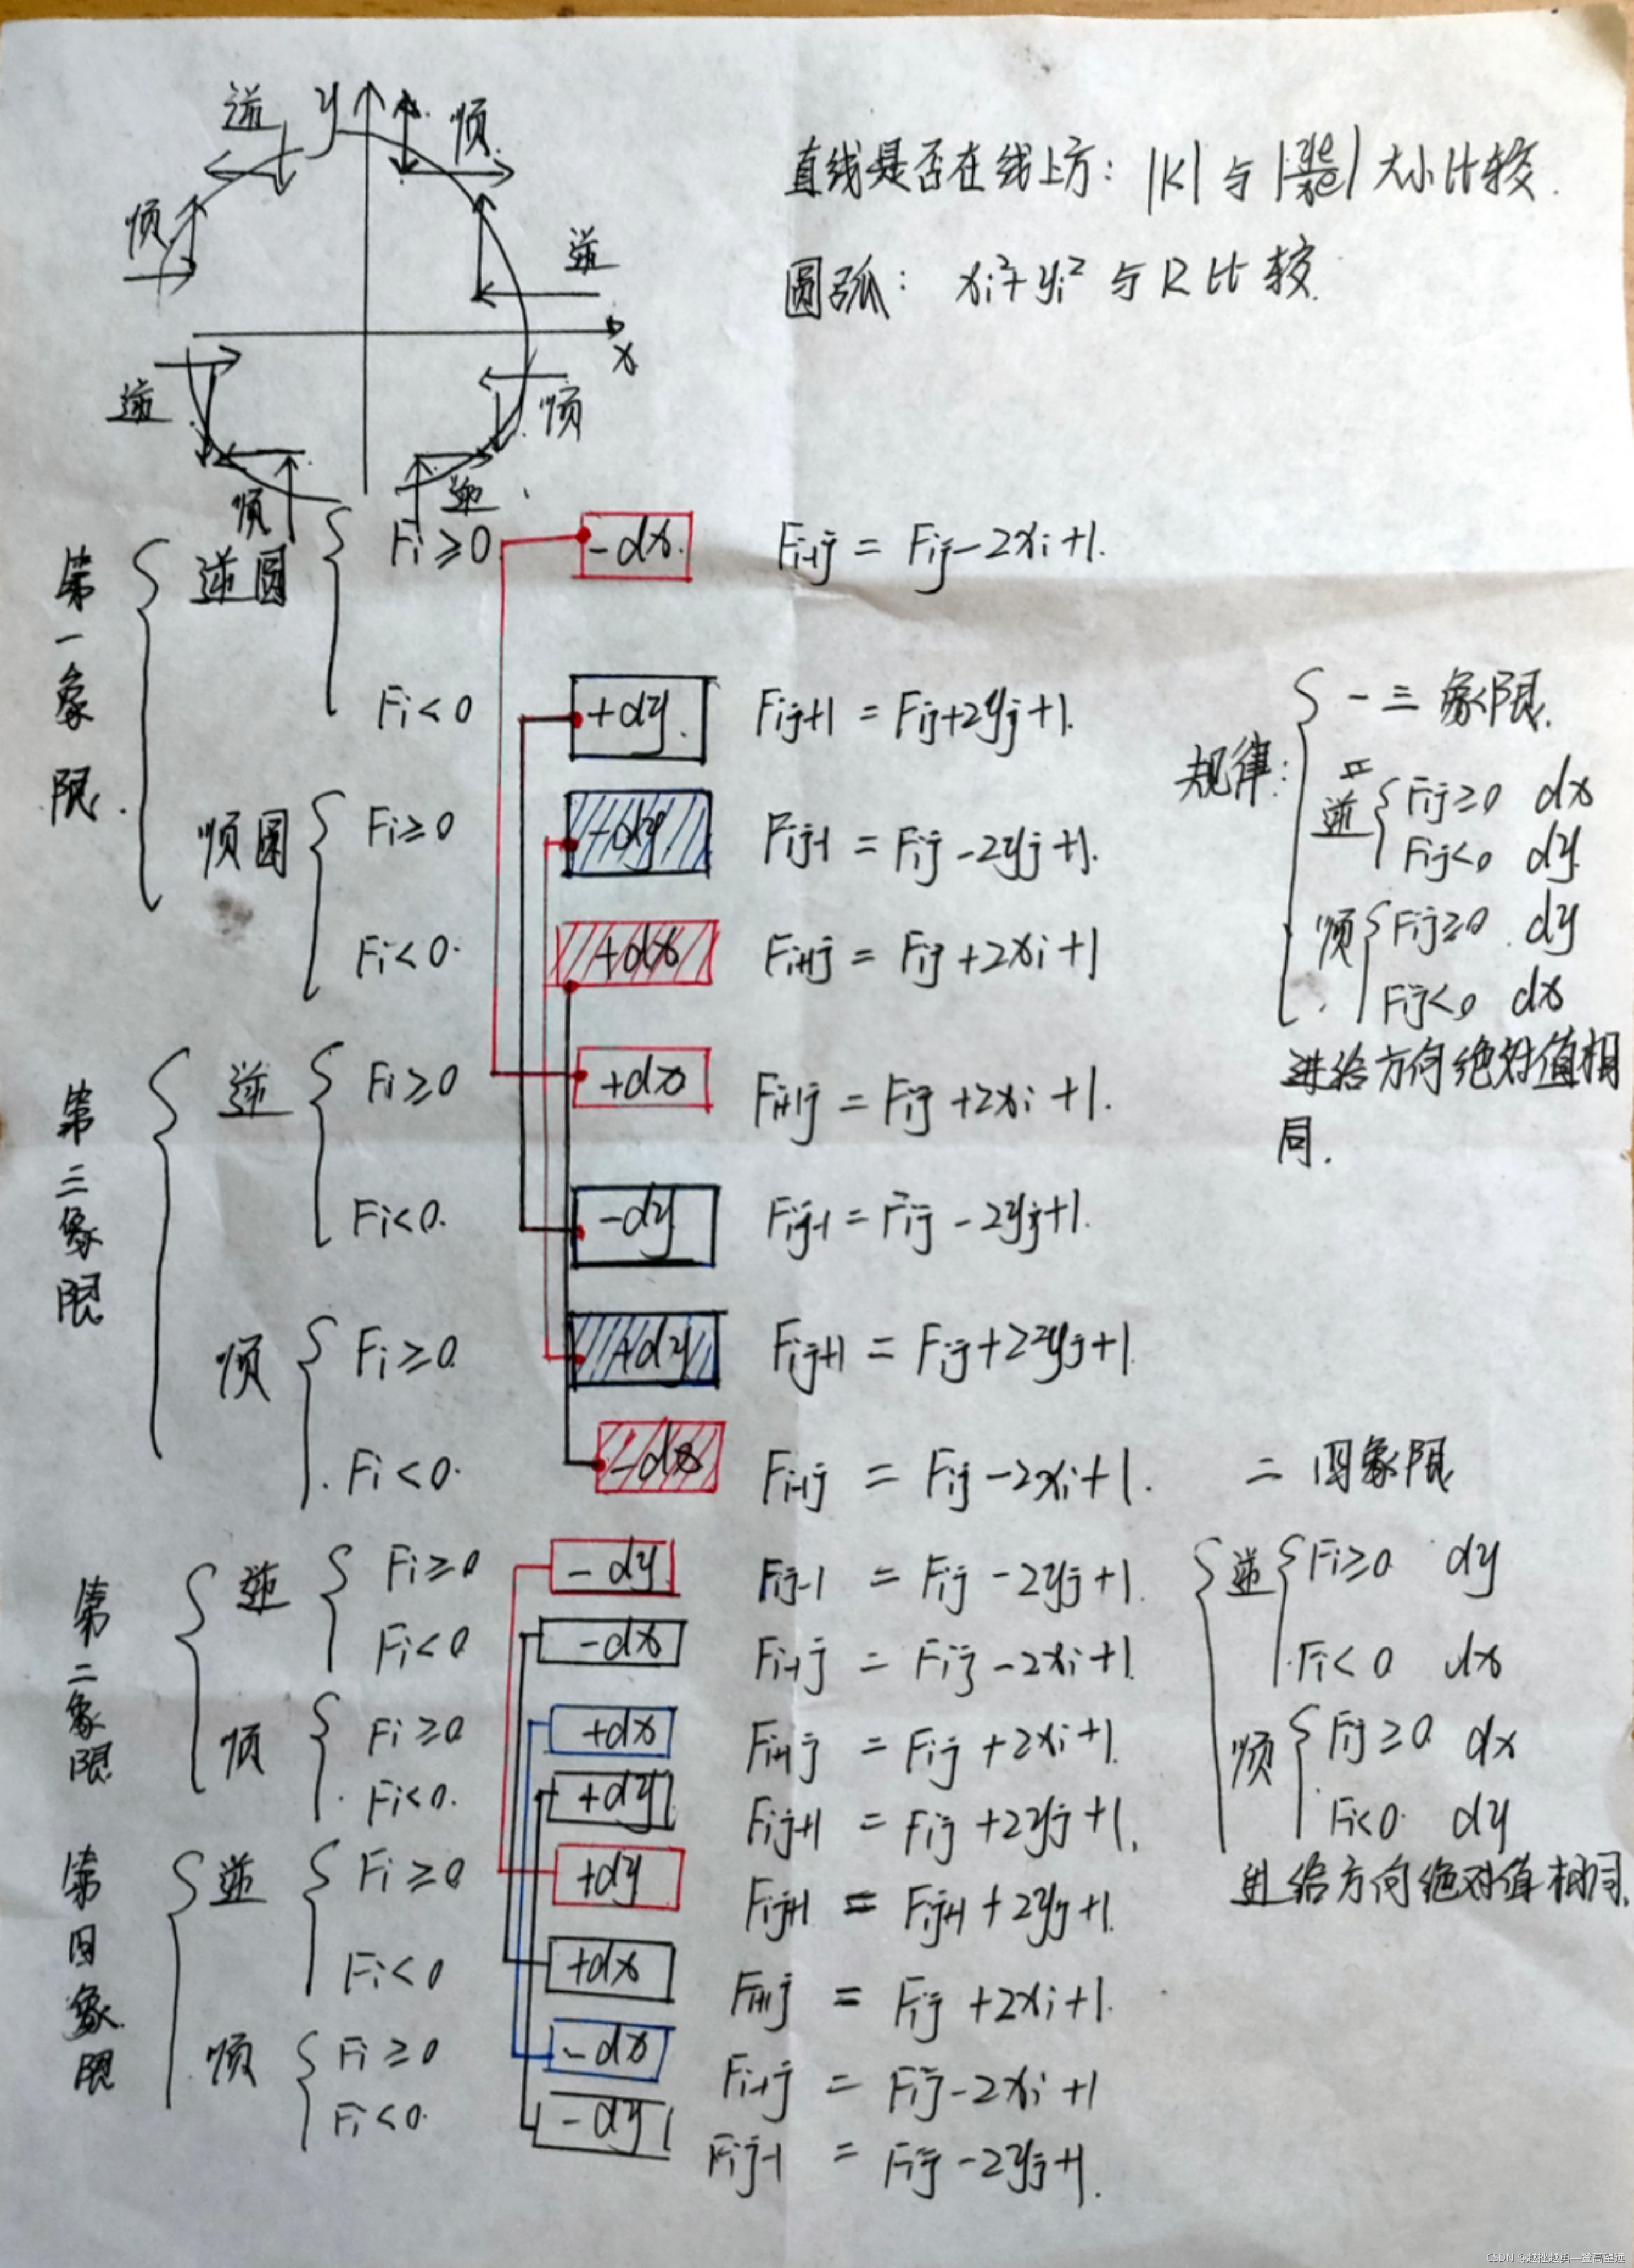 逆 y 顺
顺 逆
x
逆 顺
顺 逆
直线是否在线上方: |K| 与 |ye/xe| 大小比较.
圆弧: xi²+yi² 与 R 比较.
第一象限.
逆圆 Fi≥0 -dx. Fi-1j = Fij-2xi+1.
Fi<0 +dy. Fij+1 = Fij+2yj+1.
顺圆 Fi≥0 -dy Fij-1 = Fij-2yj+1.
Fi<0. +dx Fi+1j = Fij+2xi+1
第三象限
逆 Fi≥0 +dx Fi+1j = Fij+2xi+1.
Fi<0. -dy Fij-1 = Fij-2yj+1.
顺 Fi≥0. +dy Fij+1 = Fij+2yj+1.
Fi<0. -dx Fi-1j = Fij-2xi+1.
规律:
一三象限.
逆 Fij≥0 dx
Fij<0 dy.
顺 Fij≥0. dy
Fij<0 dx
进给方向绝对值相
同.
第二象限
逆 Fi≥0 -dy Fij-1 = Fij-2yj+1.
Fi<0. -dx Fi-1j = Fij-2xi+1.
顺 Fi≥0. +dx Fi+1j = Fij+2xi+1.
Fi<0. +dy Fij+1 = Fij+2yj+1.
第四象限
逆 Fi≥0 +dy Fij+1 = Fij+1+2yj+1.
Fi<0 +dx Fi+1j = Fij+2xi+1.
顺 Fi≥0 -dx Fi-1j = Fij-2xi+1
Fi<0. -dy Fij-1 = Fij-2yj+1.
二四象限
逆 Fi≥0 dy
Fi<0 dx
顺 Fij≥0. dx
Fi<0. dy
进给方向绝对值相同.
CSDN @越挫越勇—登高望远